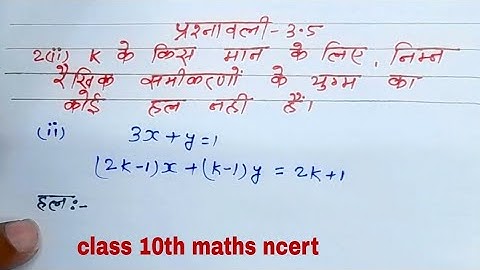 प्रश्नावली-3.5
2(ii) K के किस मान के लिए, निम्न
रैखिक समीकरणों के युग्म का
कोई हल नहीं है।
(ii) 3x+y=1
(2k-1)x+(k-1)y = 2k+1
हलः-
class 10th maths ncert